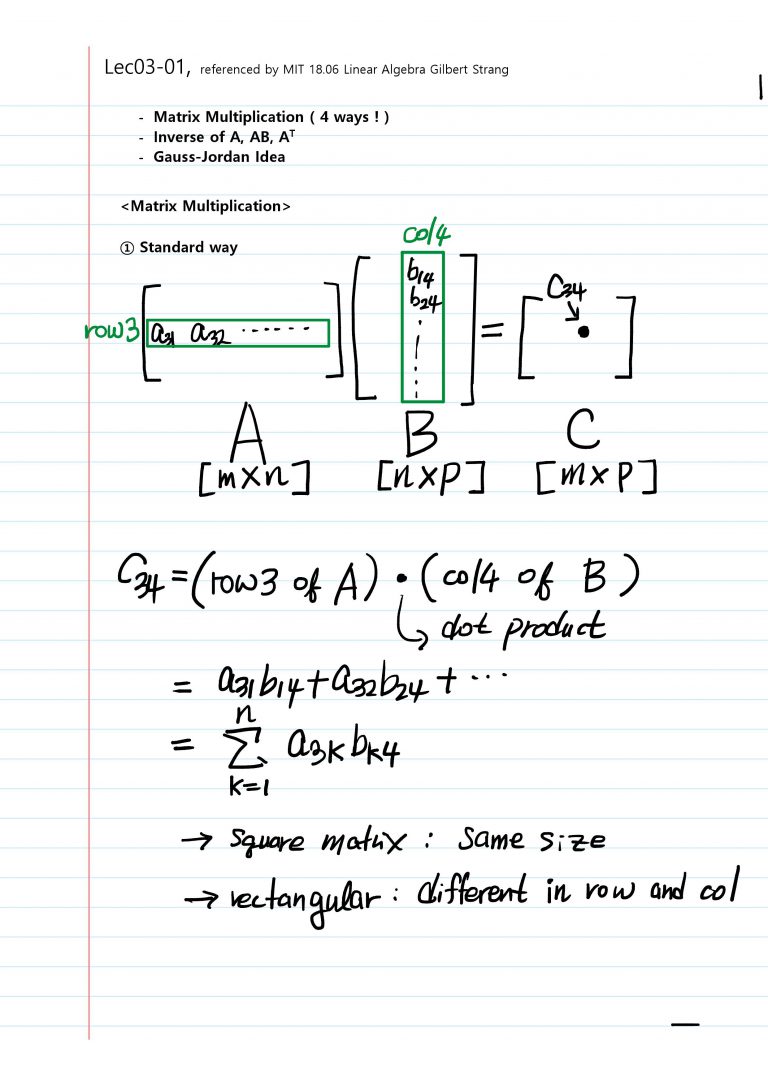 Lec03-01, referenced by MIT 18.06 Linear Algebra Gilbert Strang
1
- Matrix Multiplication ( 4 ways ! )
- Inverse of A, AB, Aᵀ
- Gauss-Jordan Idea
<Matrix Multiplication>
① Standard way
col4
row3 [a₃₁ a₃₂ ······] [b₁₄ b₂₄ ⋮] = [C₃₄ ↘ •]
A B C
[m×n] [n×p] [m×p]
C₃₄ = (row3 of A) • (col4 of B)
↳ dot product
= a₃₁b₁₄ + a₃₂b₂₄ + ···
n
= Σ a₃ₖbₖ₄
k=1
→ square matrix : same size
→ rectangular : different in row and col